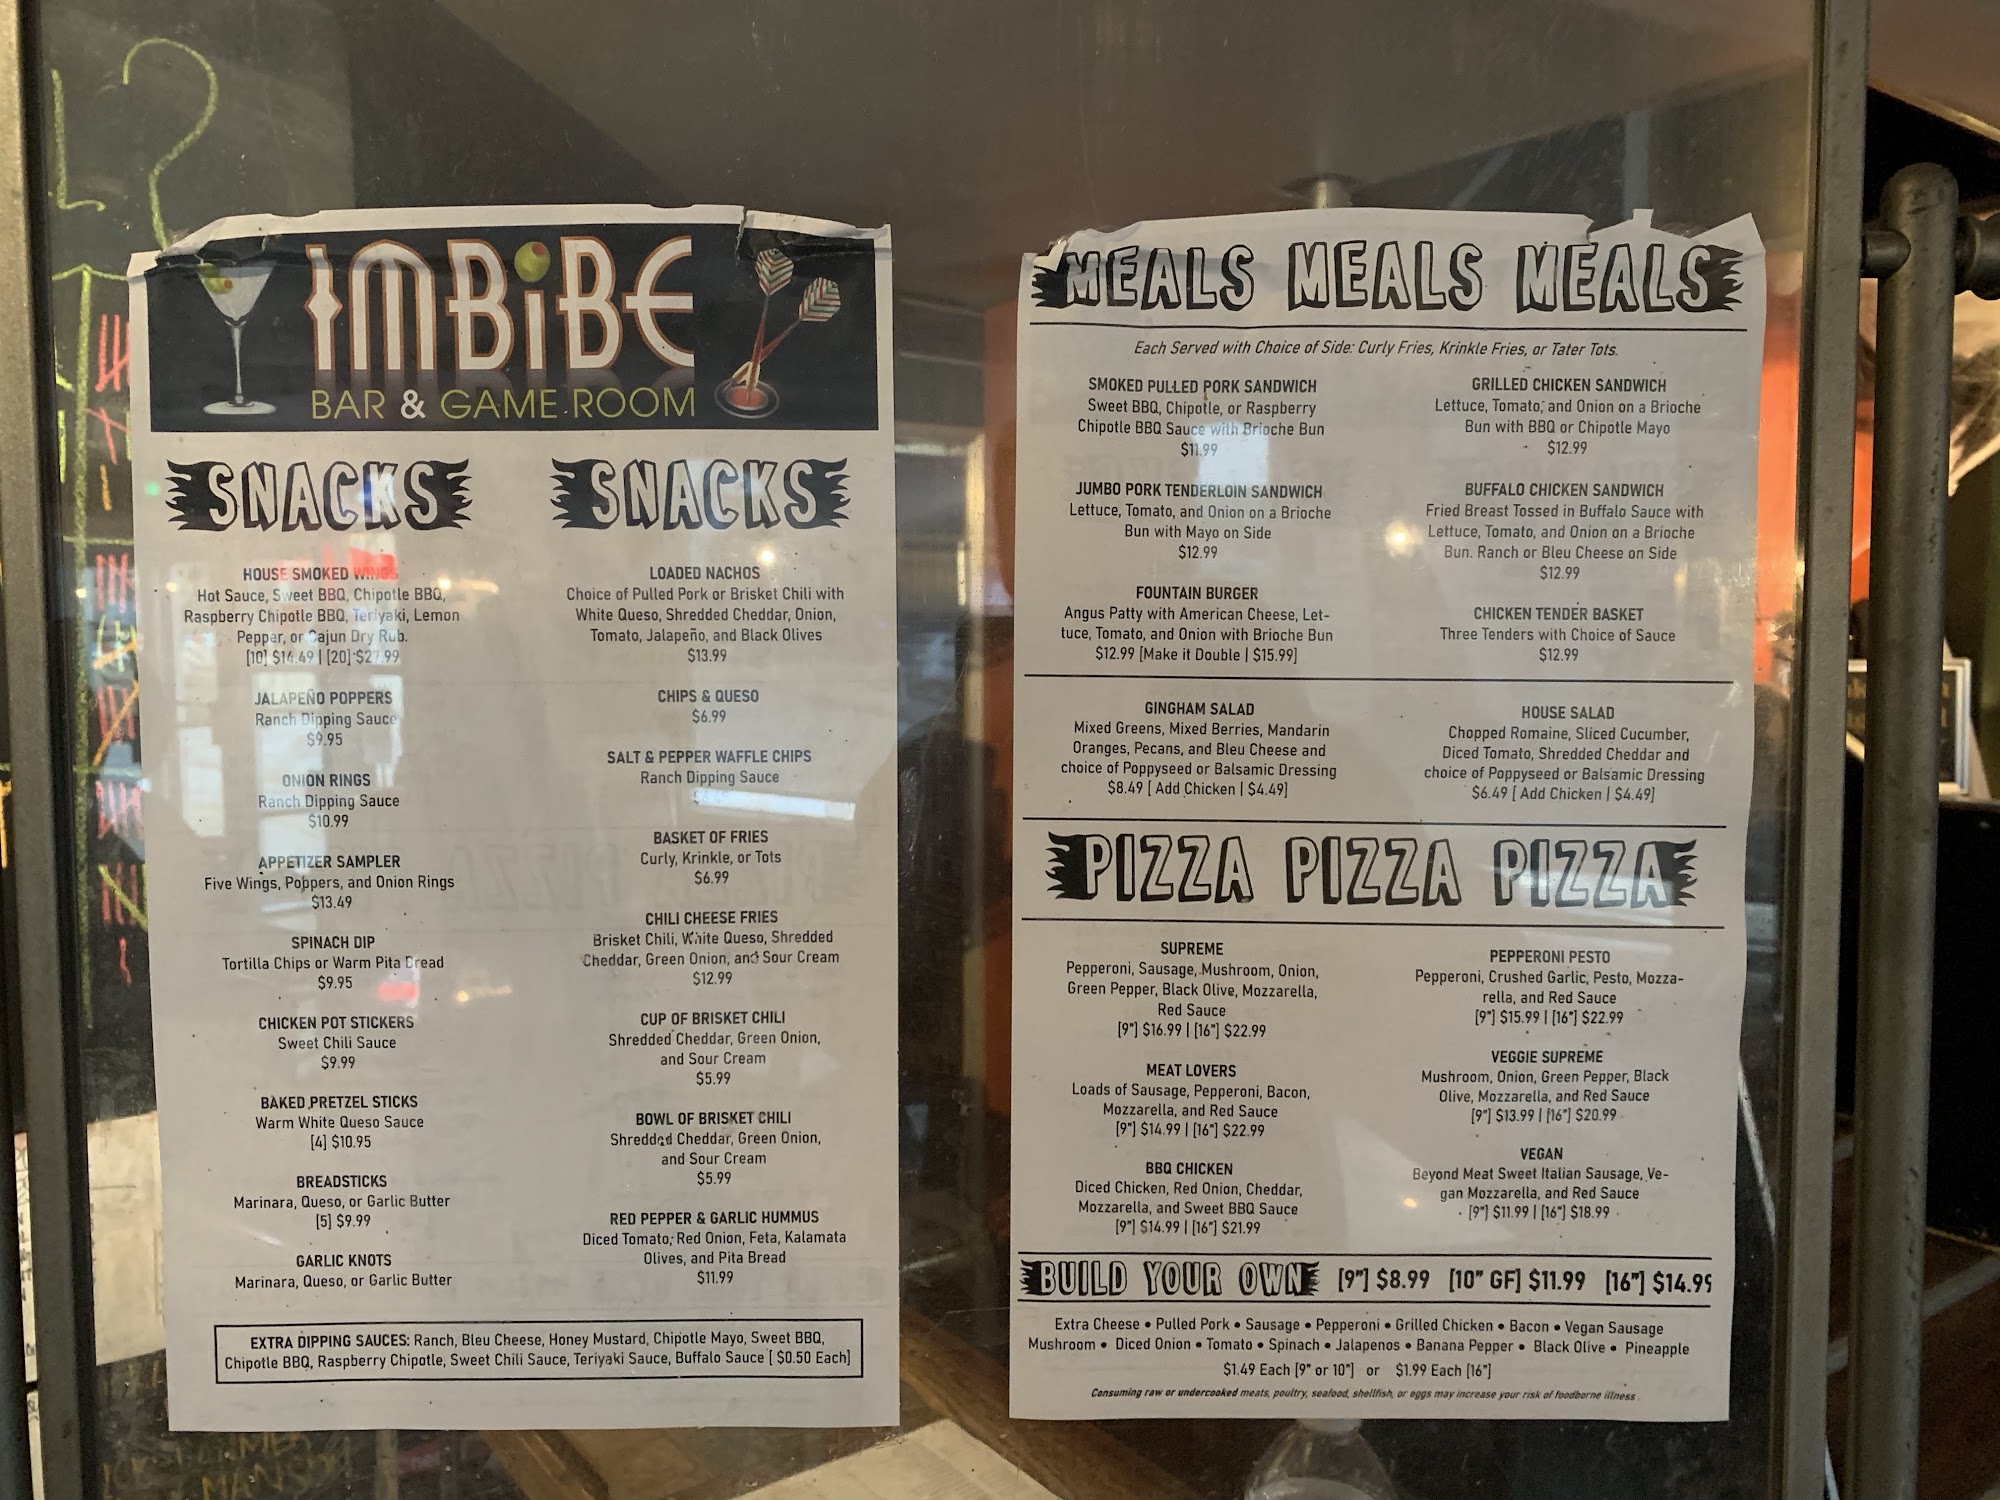 IMBIBE
BAR & GAME ROOM
SNACKS
HOUSE SMOKED WINGS
Hot Sauce, Sweet BBQ, Chipotle BBQ,
Raspberry Chipotle BBQ, Teriyaki, Lemon
Pepper, or Cajun Dry Rub.
[10] $14.49 | [20] $27.99
JALAPEÑO POPPERS
Ranch Dipping Sauce
$9.95
ONION RINGS
Ranch Dipping Sauce
$10.99
APPETIZER SAMPLER
Five Wings, Poppers, and Onion Rings
$13.49
SPINACH DIP
Tortilla Chips or Warm Pita Bread
$9.95
CHICKEN POT STICKERS
Sweet Chili Sauce
$9.99
BAKED PRETZEL STICKS
Warm White Queso Sauce
[4] $10.95
BREADSTICKS
Marinara, Queso, or Garlic Butter
[5] $9.99
GARLIC KNOTS
Marinara, Queso, or Garlic Butter
SNACKS
LOADED NACHOS
Choice of Pulled Pork or Brisket Chili with
White Queso, Shredded Cheddar, Onion,
Tomato, Jalapeño, and Black Olives
$13.99
CHIPS & QUESO
$6.99
SALT & PEPPER WAFFLE CHIPS
Ranch Dipping Sauce
BASKET OF FRIES
Curly, Krinkle, or Tots
$6.99
CHILI CHEESE FRIES
Brisket Chili, White Queso, Shredded
Cheddar, Green Onion, and Sour Cream
$12.99
CUP OF BRISKET CHILI
Shredded Cheddar, Green Onion,
and Sour Cream
$5.99
BOWL OF BRISKET CHILI
Shredded Cheddar, Green Onion,
and Sour Cream
$5.99
RED PEPPER & GARLIC HUMMUS
Diced Tomato, Red Onion, Feta, Kalamata
Olives, and Pita Bread
$11.99
EXTRA DIPPING SAUCES: Ranch, Bleu Cheese, Honey Mustard, Chipotle Mayo, Sweet BBQ,
Chipotle BBQ, Raspberry Chipotle, Sweet Chili Sauce, Teriyaki Sauce, Buffalo Sauce [ $0.50 Each]
MEALS MEALS MEALS
Each Served with Choice of Side: Curly Fries, Krinkle Fries, or Tater Tots.
SMOKED PULLED PORK SANDWICH
Sweet BBQ, Chipotle, or Raspberry
Chipotle BBQ Sauce with Brioche Bun
$11.99
JUMBO PORK TENDERLOIN SANDWICH
Lettuce, Tomato, and Onion on a Brioche
Bun with Mayo on Side
$12.99
FOUNTAIN BURGER
Angus Patty with American Cheese, Let-
tuce, Tomato, and Onion with Brioche Bun
$12.99 [Make it Double | $15.99]
GRILLED CHICKEN SANDWICH
Lettuce, Tomato, and Onion on a Brioche
Bun with BBQ or Chipotle Mayo
$12.99
BUFFALO CHICKEN SANDWICH
Fried Breast Tossed in Buffalo Sauce with
Lettuce, Tomato, and Onion on a Brioche
Bun. Ranch or Bleu Cheese on Side
$12.99
CHICKEN TENDER BASKET
Three Tenders with Choice of Sauce
$12.99
GINGHAM SALAD
Mixed Greens, Mixed Berries, Mandarin
Oranges, Pecans, and Bleu Cheese and
choice of Poppyseed or Balsamic Dressing
$8.49 [ Add Chicken | $4.49]
HOUSE SALAD
Chopped Romaine, Sliced Cucumber,
Diced Tomato, Shredded Cheddar and
choice of Poppyseed or Balsamic Dressing
$6.49 [ Add Chicken | $4.49]
PIZZA PIZZA PIZZA
SUPREME
Pepperoni, Sausage, Mushroom, Onion,
Green Pepper, Black Olive, Mozzarella,
Red Sauce
[9"] $16.99 | [16"] $22.99
MEAT LOVERS
Loads of Sausage, Pepperoni, Bacon,
Mozzarella, and Red Sauce
[9"] $14.99 | [16"] $22.99
BBQ CHICKEN
Diced Chicken, Red Onion, Cheddar,
Mozzarella, and Sweet BBQ Sauce
[9"] $14.99 | [16"] $21.99
PEPPERONI PESTO
Pepperoni, Crushed Garlic, Pesto, Mozza-
rella, and Red Sauce
[9"] $15.99 | [16"] $22.99
VEGGIE SUPREME
Mushroom, Onion, Green Pepper, Black
Olive, Mozzarella, and Red Sauce
[9"] $13.99 | [16"] $20.99
VEGAN
Beyond Meat Sweet Italian Sausage, Ve-
gan Mozzarella, and Red Sauce
[9"] $11.99 | [16"] $18.99
BUILD YOUR OWN [9"] $8.99 [10" GF] $11.99 [16"] $14.99
Extra Cheese • Pulled Pork • Sausage • Pepperoni • Grilled Chicken • Bacon • Vegan Sausage
Mushroom • Diced Onion • Tomato • Spinach • Jalapenos • Banana Pepper • Black Olive • Pineapple
$1.49 Each [9" or 10"] or $1.99 Each [16"]
Consuming raw or undercooked meats, poultry, seafood, shellfish, or eggs may increase your risk of foodborne illness